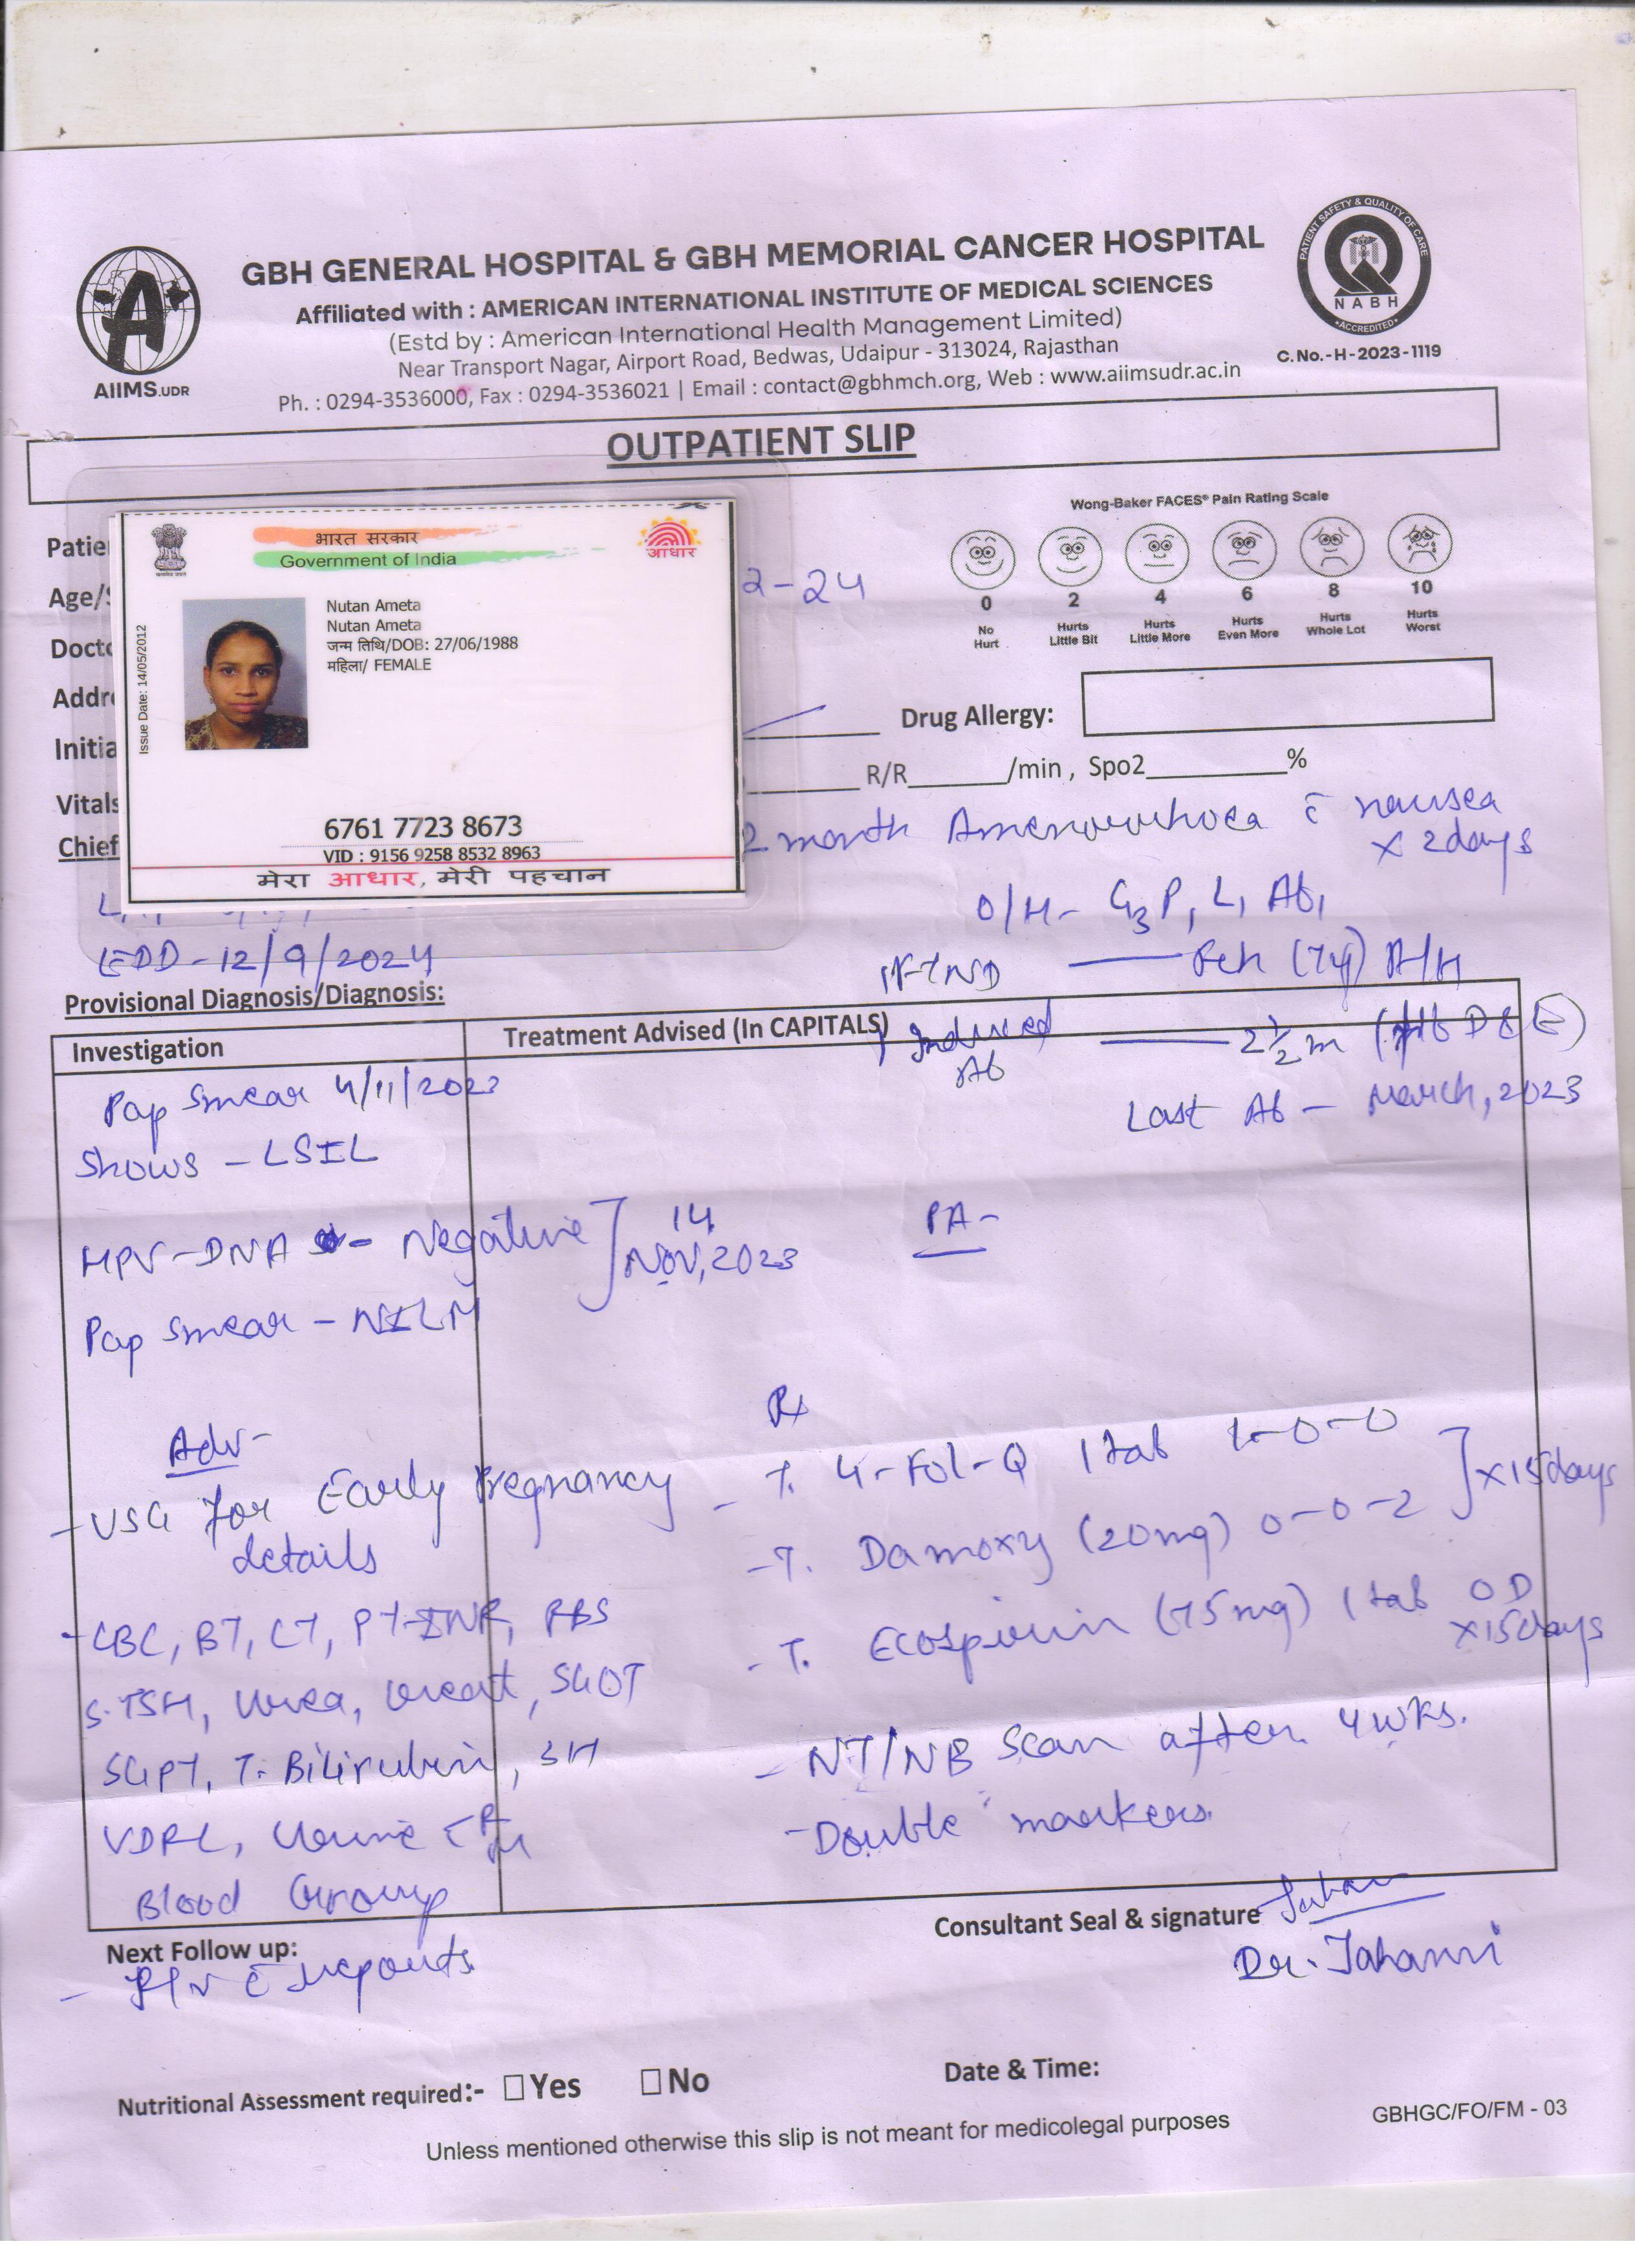 GBH GENERAL HOSPITAL & GBH MEMORIAL CANCER HOSPITAL
Affiliated with : AMERICAN INTERNATIONAL INSTITUTE OF MEDICAL SCIENCES
(Estd by : American International Health Management Limited)
Near Transport Nagar, Airport Road, Bedwas, Udaipur - 313024, Rajasthan
Ph. : 0294-3536000, Fax : 0294-3536021 | Email : contact@gbhmch.org, Web : www.aiimsudr.ac.in
A
AIIMS.UDR
PATIENT SAFETY & QUALITY OF CARE
NABH
ACCREDITED
C.No.-H-2023-1119
OUTPATIENT SLIP
Wong-Baker FACES® Pain Rating Scale
0 2 4 6 8 10
No Hurt
Hurts Little Bit
Hurts Little More
Hurts Even More
Hurts Whole Lot
Hurts Worst
Patie
Age/
Docto
Addre
Initia
Vitals
Chief
भारत सरकार
Government of India
आधार
Issue Date: 14/05/2012
Nutan Ameta
Nutan Ameta
जन्म तिथि/DOB: 27/06/1988
महिला/ FEMALE
6761 7723 8673
VID : 9156 9258 8532 8963
मेरा आधार, मेरी पहचान
2-24
Drug Allergy:
R/R /min , Spo2 %
2 month Amenorrhoea c̄ nausea
x 2days
O/H- G3 P1 L1 Ab1
EDD - 12/9/2024
FTND
Induced Ab 2½ m D & E)
Last Ab - March, 2023
Provisional Diagnosis/Diagnosis:
Investigation
Treatment Advised (In CAPITALS)
Pap Smear 4/11/2023
Shows - LSIL
HPV-DNA - Negative
14 NOV, 2023
Pap Smear - NILM
PA-
Adv-
- USG for Early Pregnancy
details
- CBC, BT, CT, PT-INR, RBS
S.TSH, Urea, Creat, SGOT
SGPT, T. Bilirubin,
VDRL, Urine
Blood Group
Rx
- T. 4-Fol-Q 1 tab 1-0-0
- T. Damoxy (20mg) 0-0-2
x15days
- T. Ecosprin (75mg) 1 tab OD
x15days
- NT/NB Scan after 4 wks.
- Double markers.
Consultant Seal & signature
Dr.
Next Follow up:
- R/v c̄ reports
Nutritional Assessment required:- Yes No
Date & Time:
Unless mentioned otherwise this slip is not meant for medicolegal purposes
GBHGC/FO/FM - 03